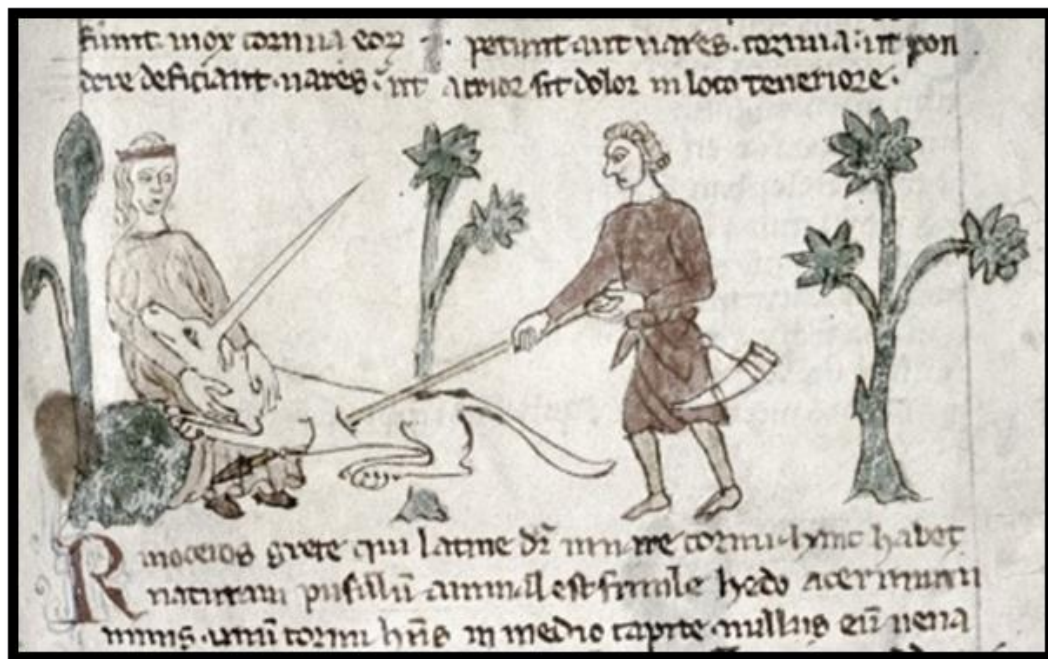 fiunt. mox cornua eor petunt aut nares. cornua. ut pon
dere deficiant. nares. ut acrior sit dolor in loco teneriore.
Rinoceros grece qui latine dr in nare cornu. hanc habet
naturam pusillū animal est simile hedo acerrimum
nimis. unū cornu hn̄s in medio capite. nullus eū uena